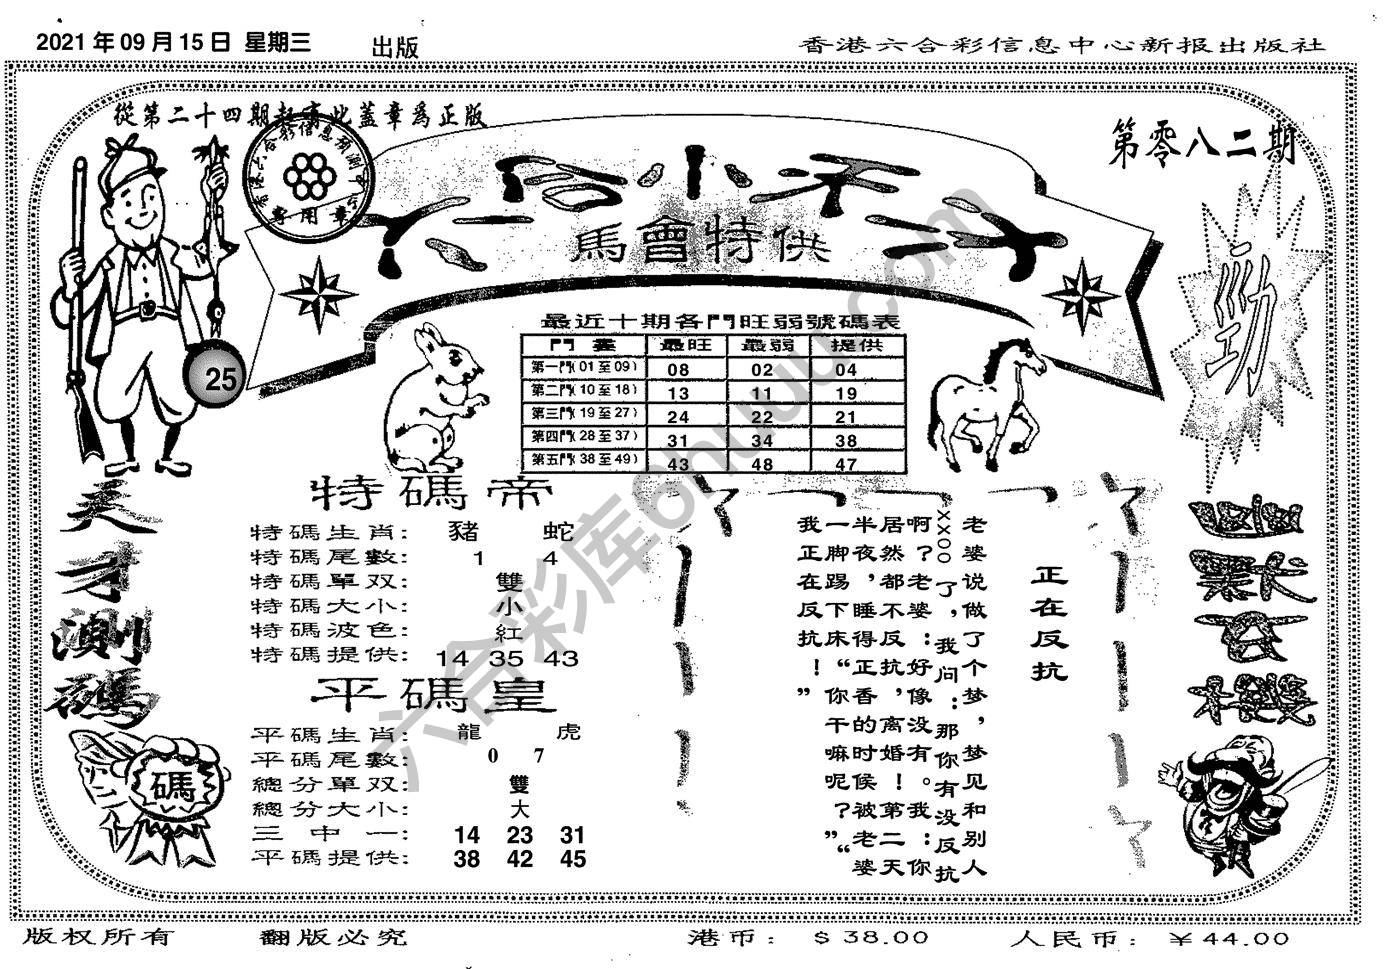 2021年09月15日 星期三
出版
香港六合彩信息中心新报出版社
從第二十四期起蓋章爲正版
專用章
第零八二期
六合小天才
馬會特供
25
勁
最近十期各門旺弱號碼表
門 最旺 最弱 提供
第一門(01至09) 08 02 04
第二門(10至18) 13 11 19
第三門(19至27) 24 22 21
第四門(28至37) 31 34 38
第五門(38至49) 43 48 47
天才測碼
特碼帝
特碼生肖: 豬 蛇
特碼尾數: 1 4
特碼單双: 雙
特碼大小: 小
特碼波色: 紅
特碼提供: 14 35 43
平碼皇
平碼生肖: 龍 虎
平碼尾數: 0 7
總分單双: 雙
總分大小: 大
三中一: 14 23 31
平碼提供: 38 42 45
碼
正在反抗
老婆说做了个梦，梦见和别人
XXOO了，我问：那你有没反抗
啊？老婆：好像没有。我：你
居然都不反抗，离婚！第二天
半夜，睡得正香的时候被老婆
一脚踢下床“你干嘛呢？”
我正在反抗！”
六合彩库6huuu.com
版权所有
翻版必究
港币: $38.00
人民币: ￥44.00